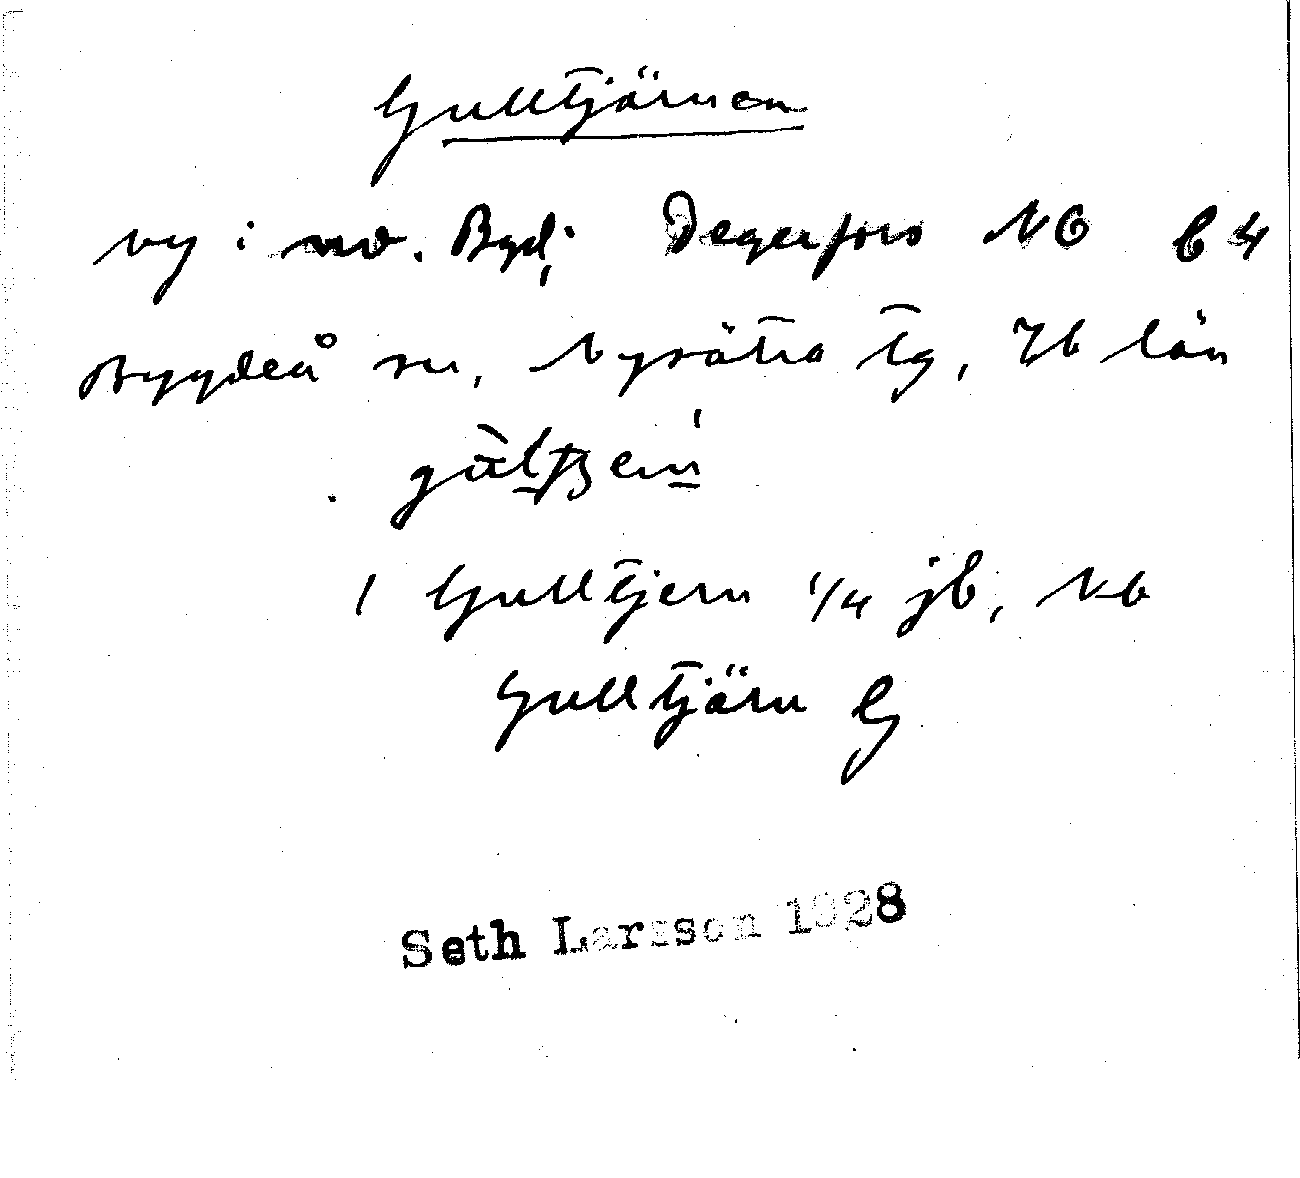 Gulltjärnen
by i nv. Bygd; Degerfors NO b 4
Bygdeå sn, Nysätra tg, Vb län
Gulltjern 1/4 jb, Nb
Gulltjärn G
Seth Larsson 1928